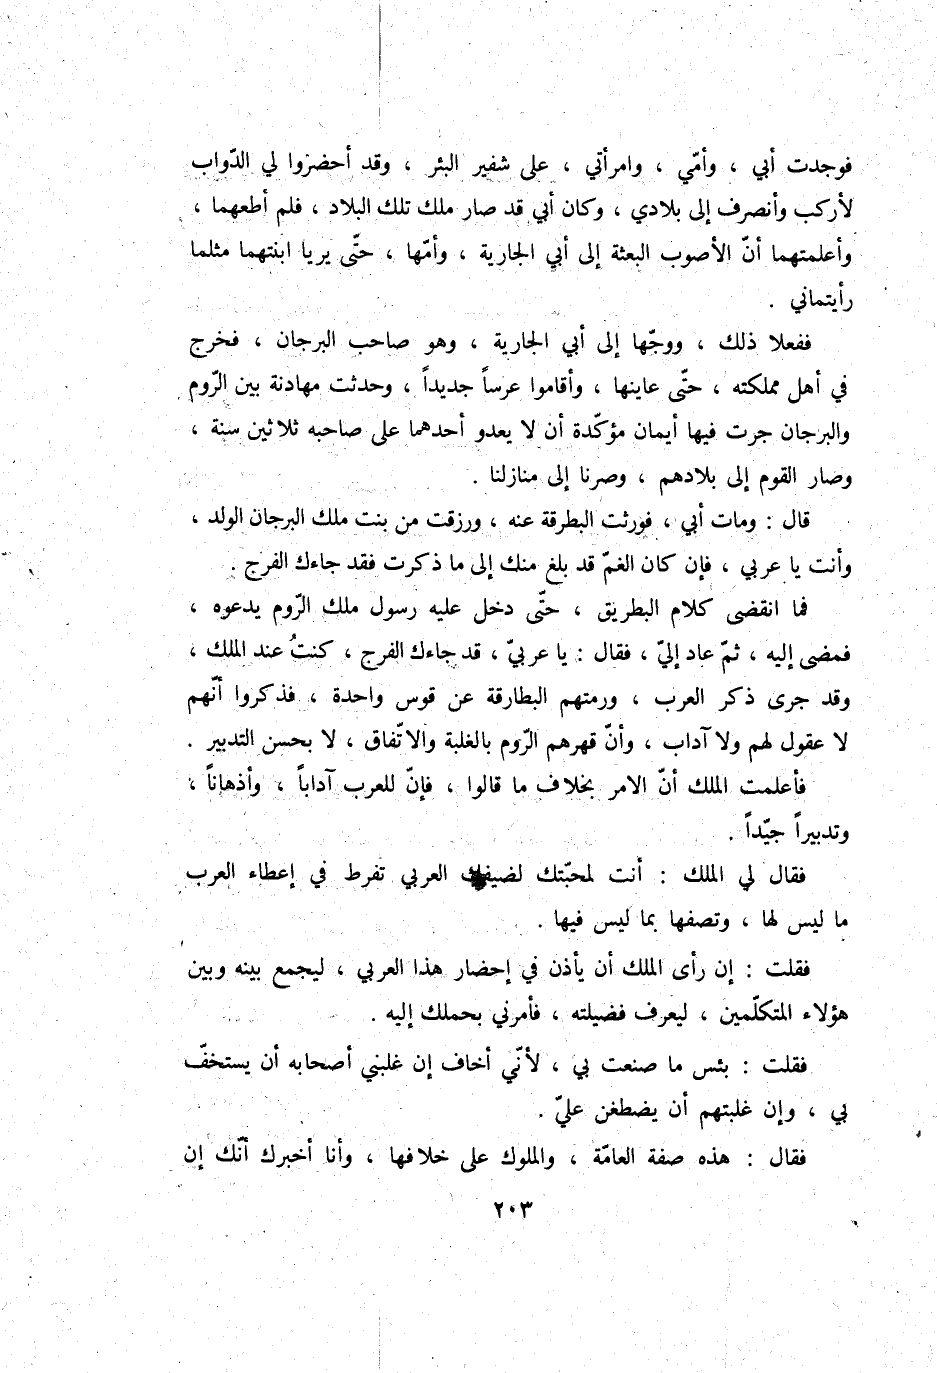 فوجدت أبي ، وأمّي ، وامرأتي ، على شفير البئر ، وقد أحضروا لي الدّواب
لأركب وأنصرف إلى بلادي ، وكان أبي قد صار ملك تلك البلاد ، فلم أطعهما ،
وأعلمتهما أنّ الأصوب البعثة إلى أبي الجارية ، وأمّها ، حتّى يريا ابنتهما مثلما
رأيتماني .
ففعلا ذلك ، ووجّها إلى أبي الجارية ، وهو صاحب البرجان ، فخرج
في أهل مملكته ، حتّى عاينها ، وأقاموا عرساً جديداً ، وحدثت مهادنة بين الرّوم
والبرجان جرت فيها أيمان مؤكّدة أن لا يعدو أحدهما على صاحبه ثلاثين سنة ،
وصار القوم إلى بلادهم ، وصرنا إلى منازلنا .
قال : ومات أبي ، فورثت البطرقة عنه ، ورزقت من بنت ملك البرجان الولد ،
وأنت يا عربي ، فإن كان الغمّ قد بلغ منك إلى ما ذكرت فقد جاءك الفرج .
فما انقضى كلام البطريق ، حتّى دخل عليه رسول ملك الرّوم يدعوه ،
فمضى إليه ، ثمّ عاد إليّ ، فقال : يا عربيّ ، قد جاءك الفرج ، كنتُ عند الملك ،
وقد جرى ذكر العرب ، ورمتهم البطارقة عن قوس واحدة ، فذكروا أنّهم
لا عقول لهم ولا آداب ، وأنّ قهرهم الرّوم بالغلبة والاتّفاق ، لا بحسن التدبير .
فأعلمت الملك أنّ الامر بخلاف ما قالوا ، فإنّ للعرب آداباً ، وأذهاناً ،
وتدبيراً جيّداً .
فقال لي الملك : أنت لمحبّتك لضيفك العربي تفرط في إعطاء العرب
ما ليس لها ، وتصفها بما ليس فيها .
فقلت : إن رأى الملك أن يأذن في إحضار هذا العربي ، ليجمع بينه وبين
هؤلاء المتكلّمين ، ليعرف فضيلته ، فأمرني بحملك إليه .
فقلت : بئس ما صنعت بي ، لأنّي أخاف إن غلبني أصحابه أن يستخفّ
بي ، وإن غلبتهم أن يضطغن عليّ .
فقال : هذه صفة العامّة ، والملوك على خلافها ، وأنا أخبرك أنّك إن
٢٠٣